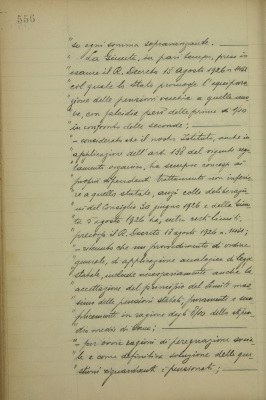 556
"su ogni somma sopravanzante. —
" La Giunta, in pari tempo, preso in
"esame il R. Decreto 13 agosto 1926 n. 1431
"col quale lo Stato provvede l'equipara-
"zione delle pensioni vecchie a quelle nuo-
"ve, con falcidia però delle prime di
"in confronto delle seconde; —
"— considerato che il nostro Istituto, anche in
"applicazione dell'art. 138 del vigente rego-
"lamento organico, ha sempre concesso ai
"propri dipendenti trattamento non inferio-
"re a quello statale, anzi colle deliberazio-
"ni del Consiglio 30 giugno 1926 e della Giun-
"ta 3 agosto 1926 ha, entro certi limiti,
"precorso il R. Decreto 13 agosto 1926 n. 1431; —
"— ritenuto che un provvedimento di ordine
"generale, di applicazione analogica di legge
"statale, include necessariamente anche la
"accettazione del principio del limite mas-
"simo delle pensioni statali, puramente e
"semplicemente in ragione degli 8/10 dello stipen-
"dio medio di base; —
"— per ovvie ragioni di perequazione socia-
"le e come definitiva soluzione delle que-
"stioni riguardanti i pensionati; —